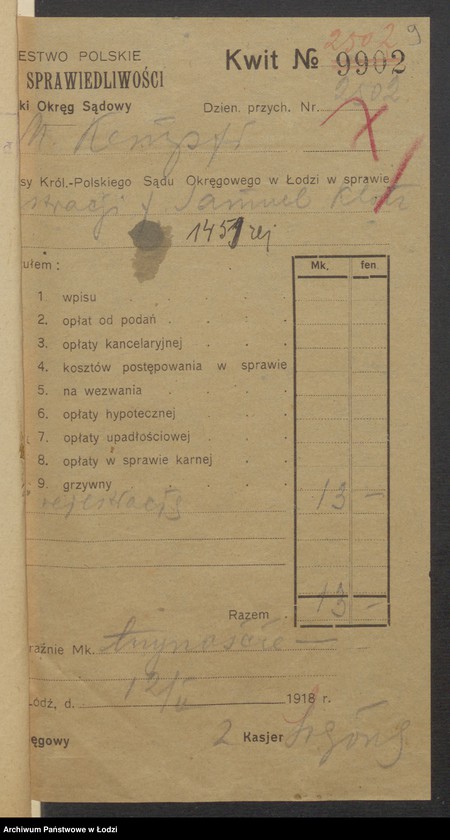 2502 9
ESTWO POLSKIE
Kwit № 9902
SPRAWIEDLIWOŚCI
2502
ki Okręg Sądowy
Dzien. przych. Nr.
sy Król.-Polskiego Sądu Okręgowego w Łodzi w sprawie
stracji f Samuel
1459 rej
ułem:
Mk. fen
1 wpisu
2. opłat od podań
3. opłaty kancelaryjnej
4. kosztów postępowania w sprawie
5. na wezwania
6. opłaty hypotecznej
7. opłaty upadłościowej
8. opłaty w sprawie karnej
9. grzywny
13 —
Razem 13 —
raźnie Mk. trzynaście —
Łódź, d. 12/II 1918 r.
ęgowy 2 Kasjer
Archiwum Państwowe w Łodzi